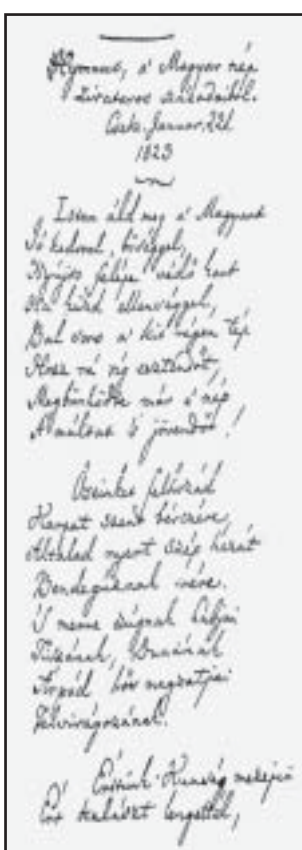 Hymnus, a' Magyar nép
zivataros századaiból.
Cseke, Januar. 22d.
1823
Isten áld meg a' Magyart
Jó kedvvel, bőséggel,
Nyújts feléje védő kart
Ha küzd ellenséggel,
Bal sors a' kit régen tép
Hozz rá víg esztendőt,
Megbünhödte már e' nép
A' multat 's jövendőt!
Őseinket felhozád
Kárpát szent bérczére,
Általad nyert szép hazát
Bendegúznak vére.
'S merre zúgnak habjai
Tiszának, Dunának,
Árpád' hős magzatjai
Felvirágozának.
Értünk Kunság mezején
Ért kalászt lengettél,